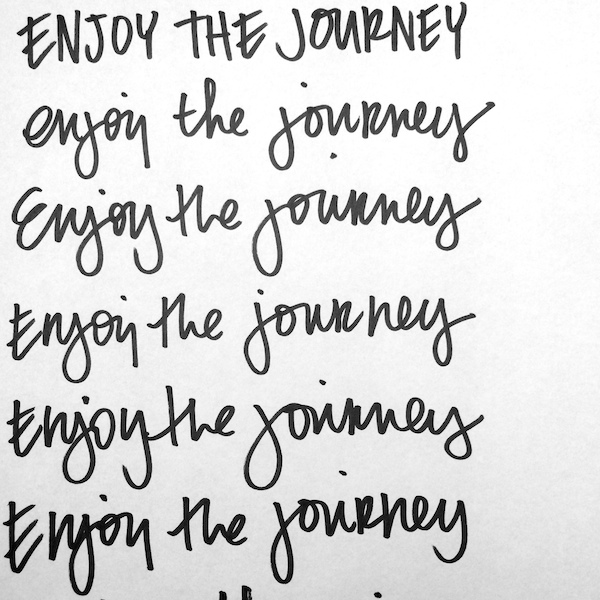 ENJOY THE JOURNEY
enjoy the journey
Enjoy the journey
Enjoy the journey
Enjoy the journey
Enjoy the journey